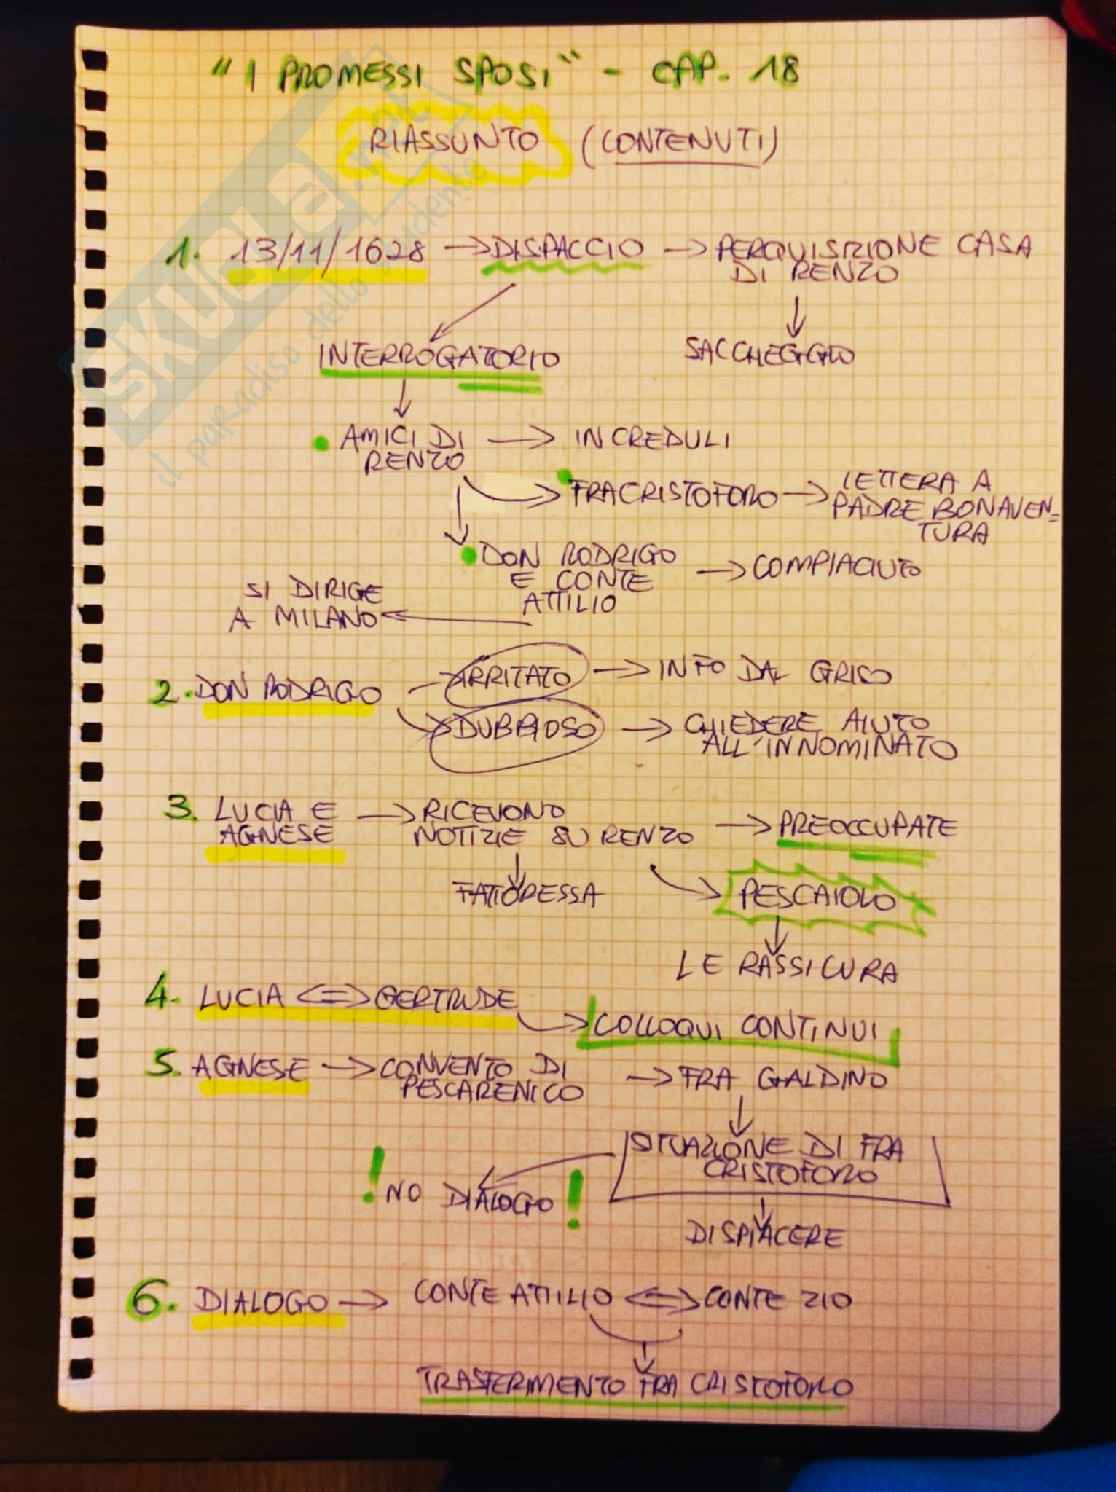 "I PROMESSI SPOSI" - CAP. 18
RIASSUNTO (CONTENUTI)
1. 13/11/1628 → DISPACCIO → PERQUISIZIONE CASA
DI RENZO
INTERROGATORIO
SACCHEGGIO
AMICI DI
RENZO
→ INCREDULI
FRA CRISTOFORO → LETTERA A
PADRE BONAVEN=
TURA
DON RODRIGO
E CONTE
ATTILIO
→ COMPIACIUTO
SI DIRIGE
A MILANO
2. DON RODRIGO
ARRITATO → INFO DAL GRISO
DUBBIOSO → CHIEDERE AIUTO
ALL'INNOMINATO
3. LUCIA E
AGNESE
→ RICEVONO
NOTIZIE SU RENZO
→ PREOCCUPATE
FATTORESSA
PESCAIOLO
LE RASSICURA
4. LUCIA <=> GERTRUDE
→ COLLOQUI CONTINUI
5. AGNESE → CONVENTO DI
PESCARENICO
→ FRA GALDINO
SITUAZIONE DI FRA
CRISTOFORO
! NO DIALOGO !
DISPIACERE
6. DIALOGO → CONTE ATTILIO <=> CONTE ZIO
TRASFERIMENTO FRA CRISTOFORO
SKUOLA.net
il paradiso dello studente